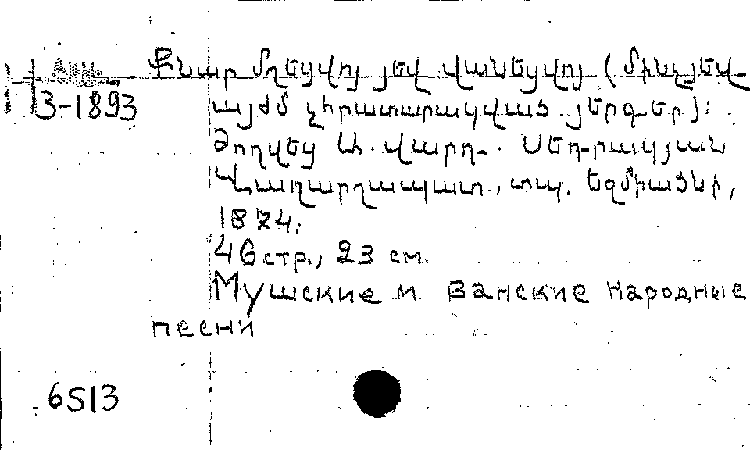 Арм.
3-1893
Քնար մշեցվոյ յեվ վանեցվոյ (մինչեվ-
այժմ չհրատարակված յերգեր)։
Ժողվեց Ա. վարդ. Սեդրակյան
Վաղարշապատ, տպ. Եջմիածնի,
1874.
46 стр., 23 см.
Мушские и ванские народные
песни
6513